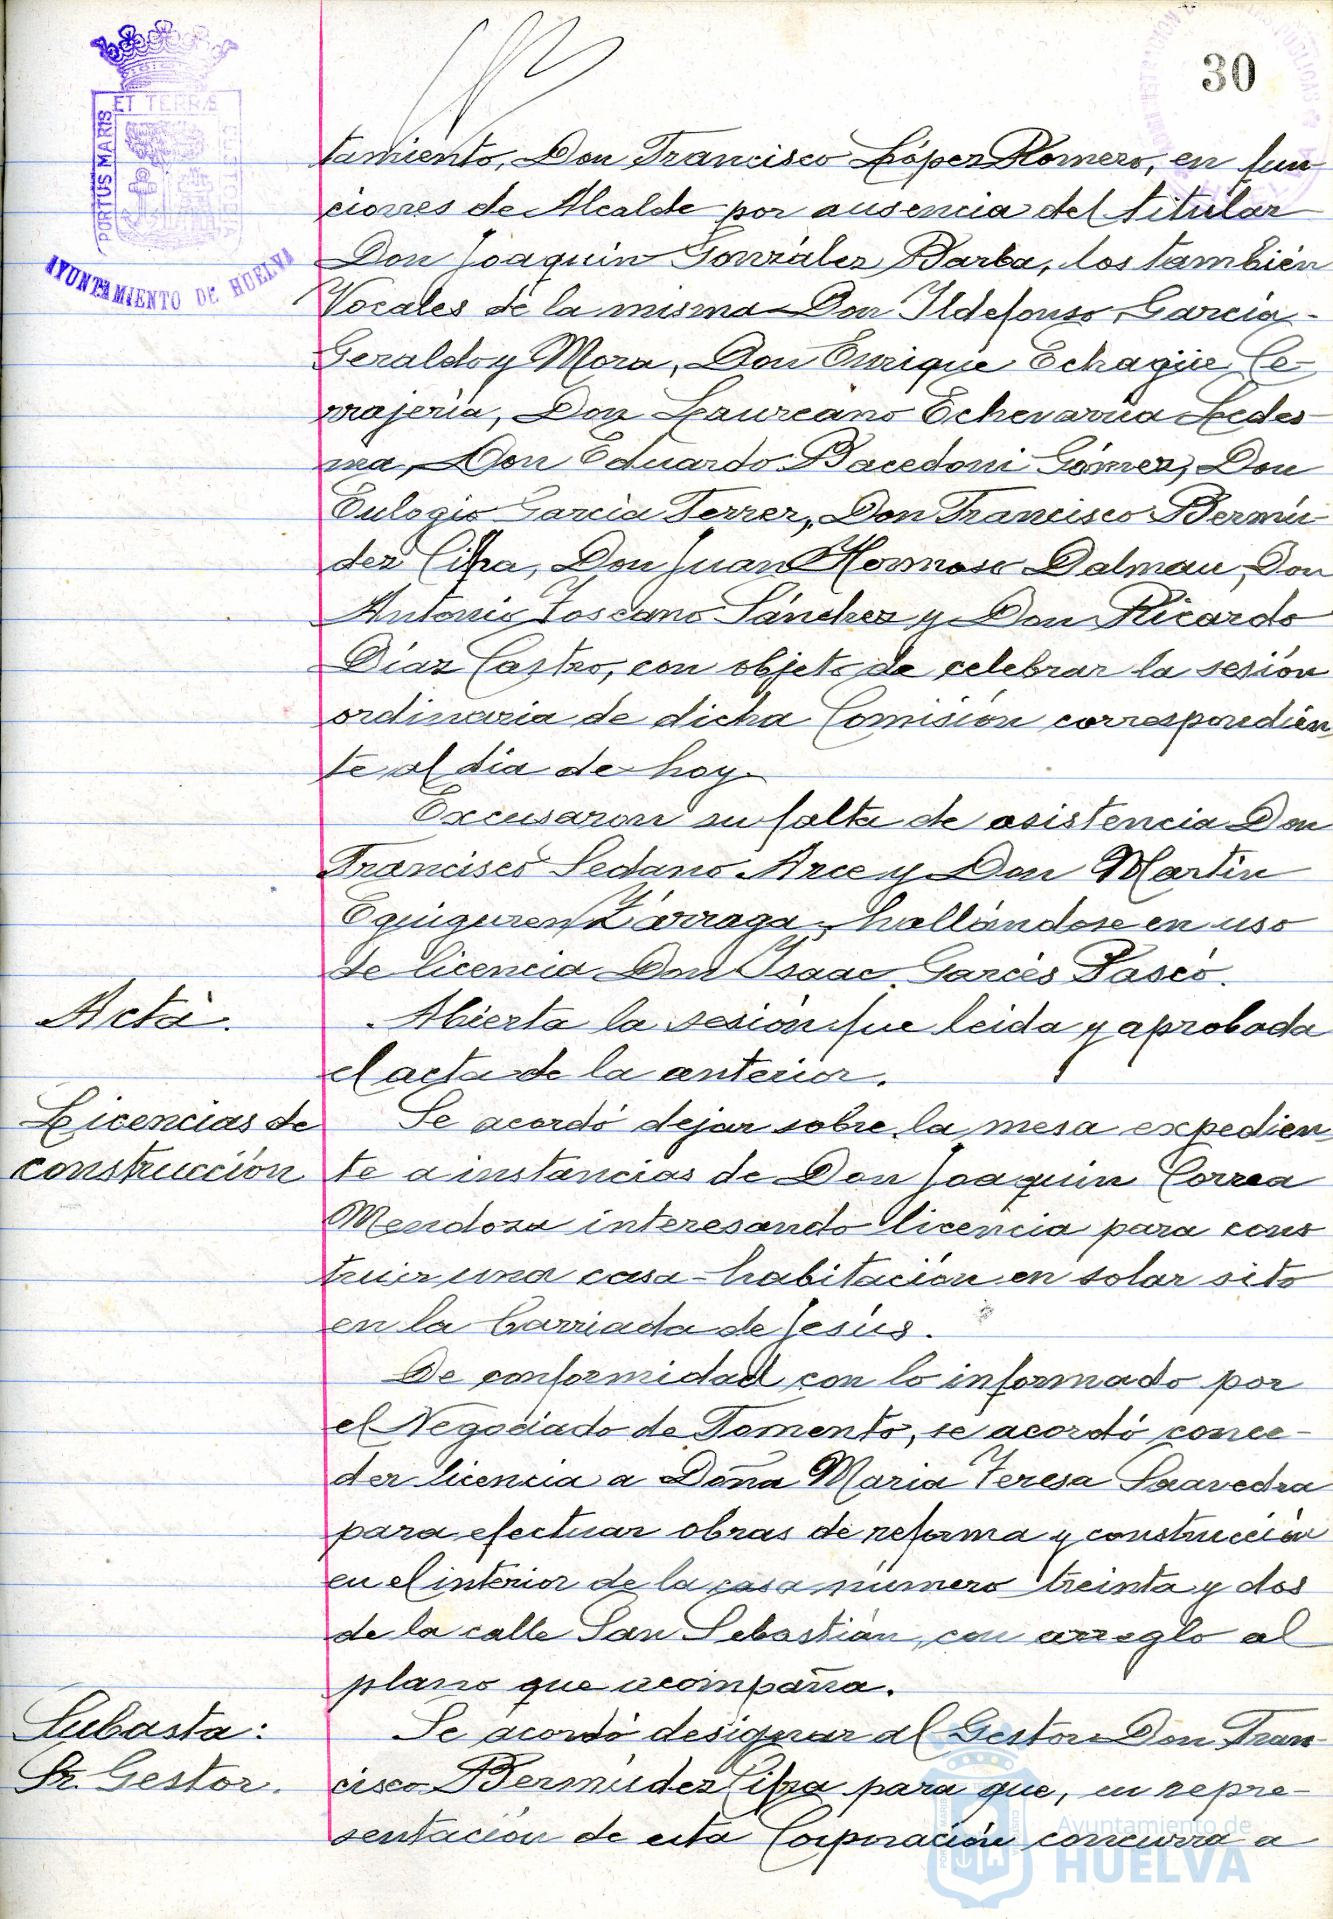 30
PORTUS MARIS
ET TERRÆ
CUSTODIA
AYUNTAMIENTO DE HUELVA
tamiento, Don Francisco López Romero, en fun-
ciones de Alcalde por ausencia del titular
Don Joaquín González Barba, los también
Vocales de la misma Don Ildefonso García-
Geraldo y Mora, Don Enrique Echagüe Ce-
rrajería, Don Laureano Echevarría Ledes-
ma, Don Eduardo Bacedoni Gómez, Don
Eulogio García Ferrer, Don Francisco Bermú-
dez Cifra, Don Juan Hermoso Dalmau, Don
Antonio Toscano Sánchez y Don Ricardo
Díaz Castro, con objeto de celebrar la sesión
ordinaria de dicha Comisión correspondien
te al día de hoy.
Excusaron su falta de asistencia Don
Francisco Sedano Arce y Don Martín
Eguiguren Zárraga, hallándose en uso
de licencia Don Isaac Garcés Pascó.
Acta.
Abierta la sesión fue leida y aprobada
el acta de la anterior.
Licencias de
construcción
Se acordó dejar sobre la mesa expedien
te a instancias de Don Joaquín Correa
Mendoza interesando licencia para cons
truir una casa-habitación en solar sito
en la barriada de Jesús.
De conformidad con lo informado por
el Negociado de Fomento, se acordó conce-
der licencia a Doña Maria Teresa Saavedra
para efectuar obras de reforma y construcción
en el interior de la casa número treinta y dos
de la calle San Sebastián, con arreglo al
plano que acompaña.
Subasta:
Sr. Gestor.
Se acordó designar al Gestor Don Fran-
cisco Bermúdez Cifra para que, en repre-
sentación de esta Corporación concurra a
Ayuntamiento de
HUELVA